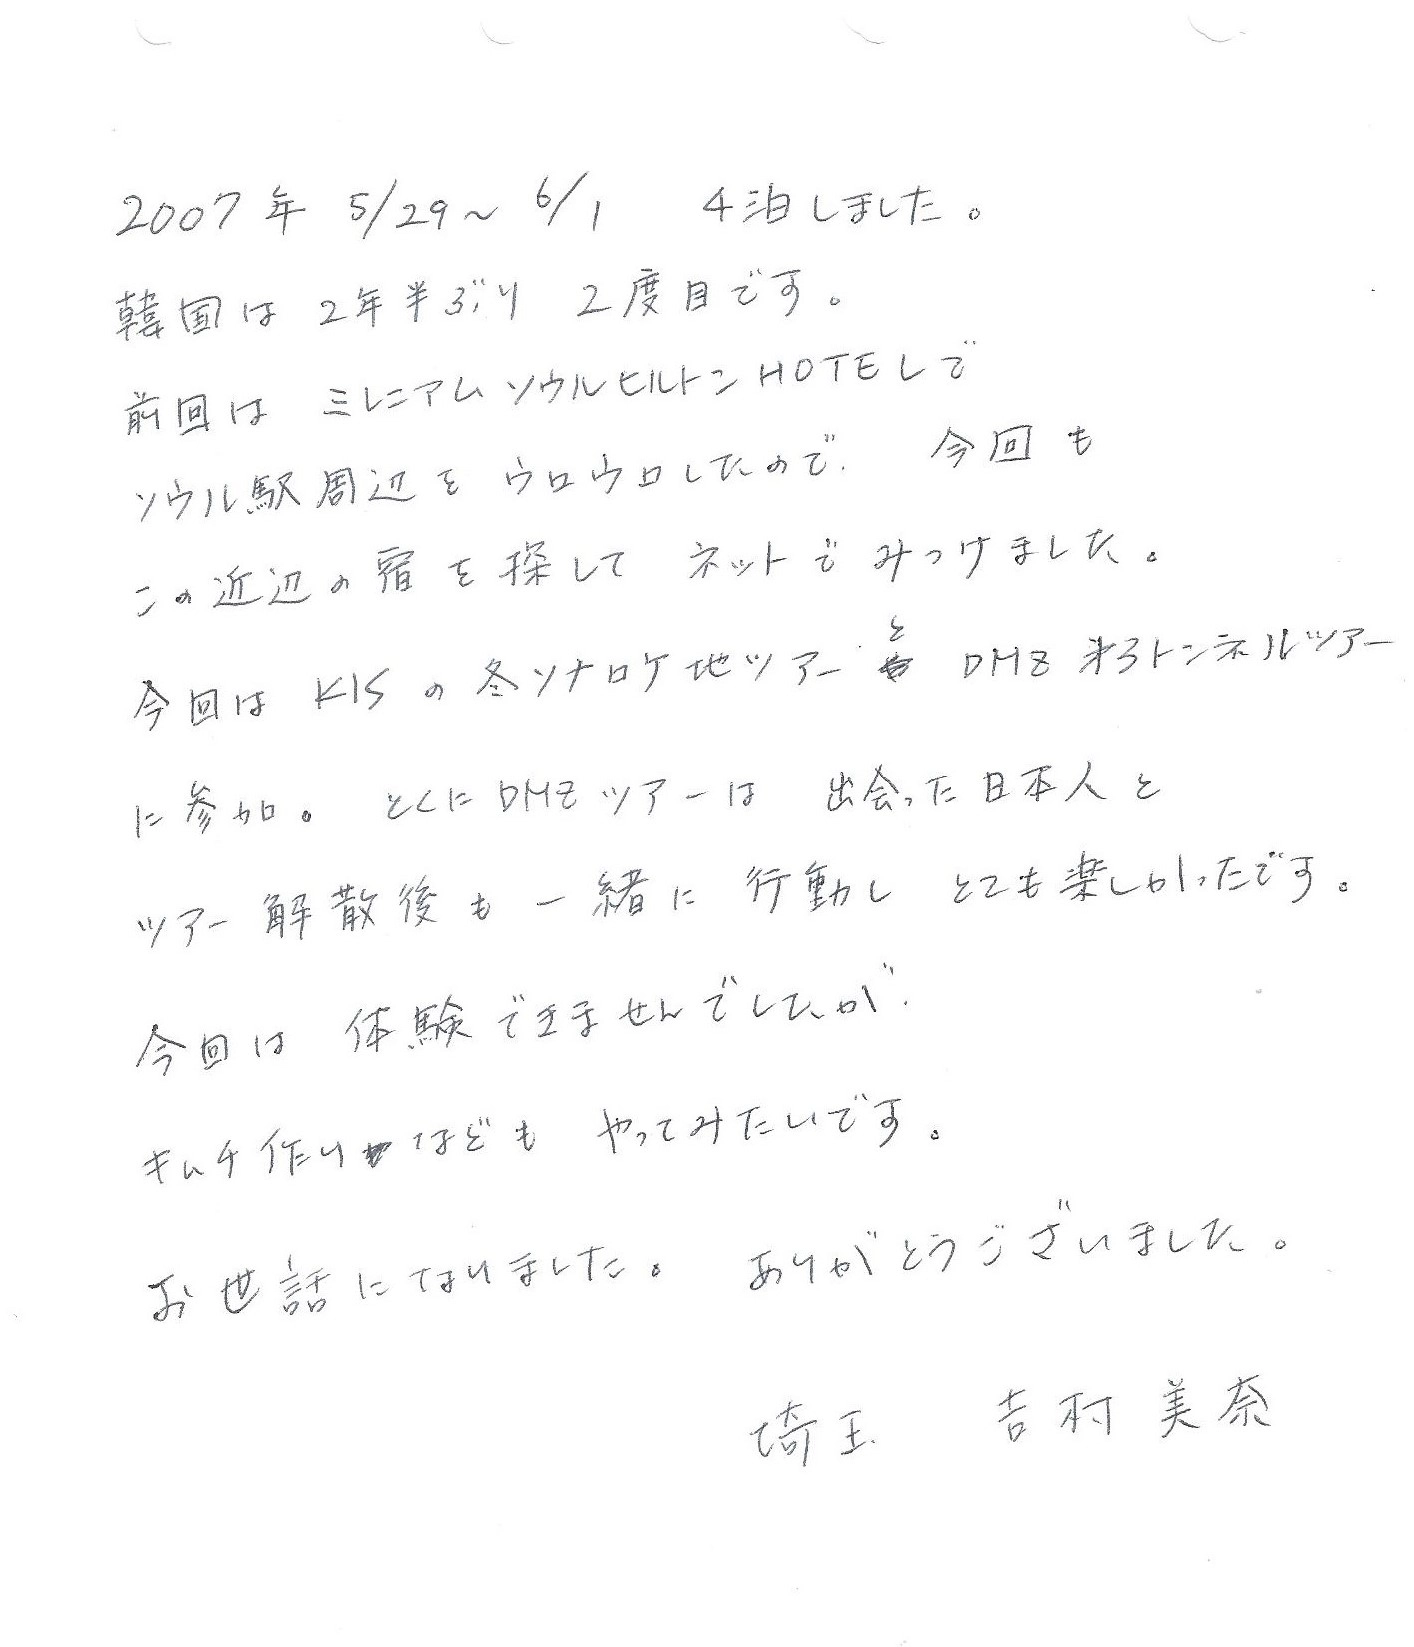 2007年 5/29～6/1 4泊しました。
韓国は2年半ぶり 2度目です。
前回は ミレニアムソウルヒルトンHOTELで
ソウル駅周辺を ウロウロしたので、 今回も
この近辺の宿を探して ネットでみつけました。
今回は KISの冬ソナロケ地ツアーと DMZ 第3トンネルツアー
に参加。 とくにDMZツアーは 出会った日本人と
ツアー解散後も一緒に行動し とても楽しかったです。
今回は 体験できませんでしたが、
キムチ作りなども やってみたいです。
お世話になりました。 ありがとうございました。
埼玉 吉村美奈